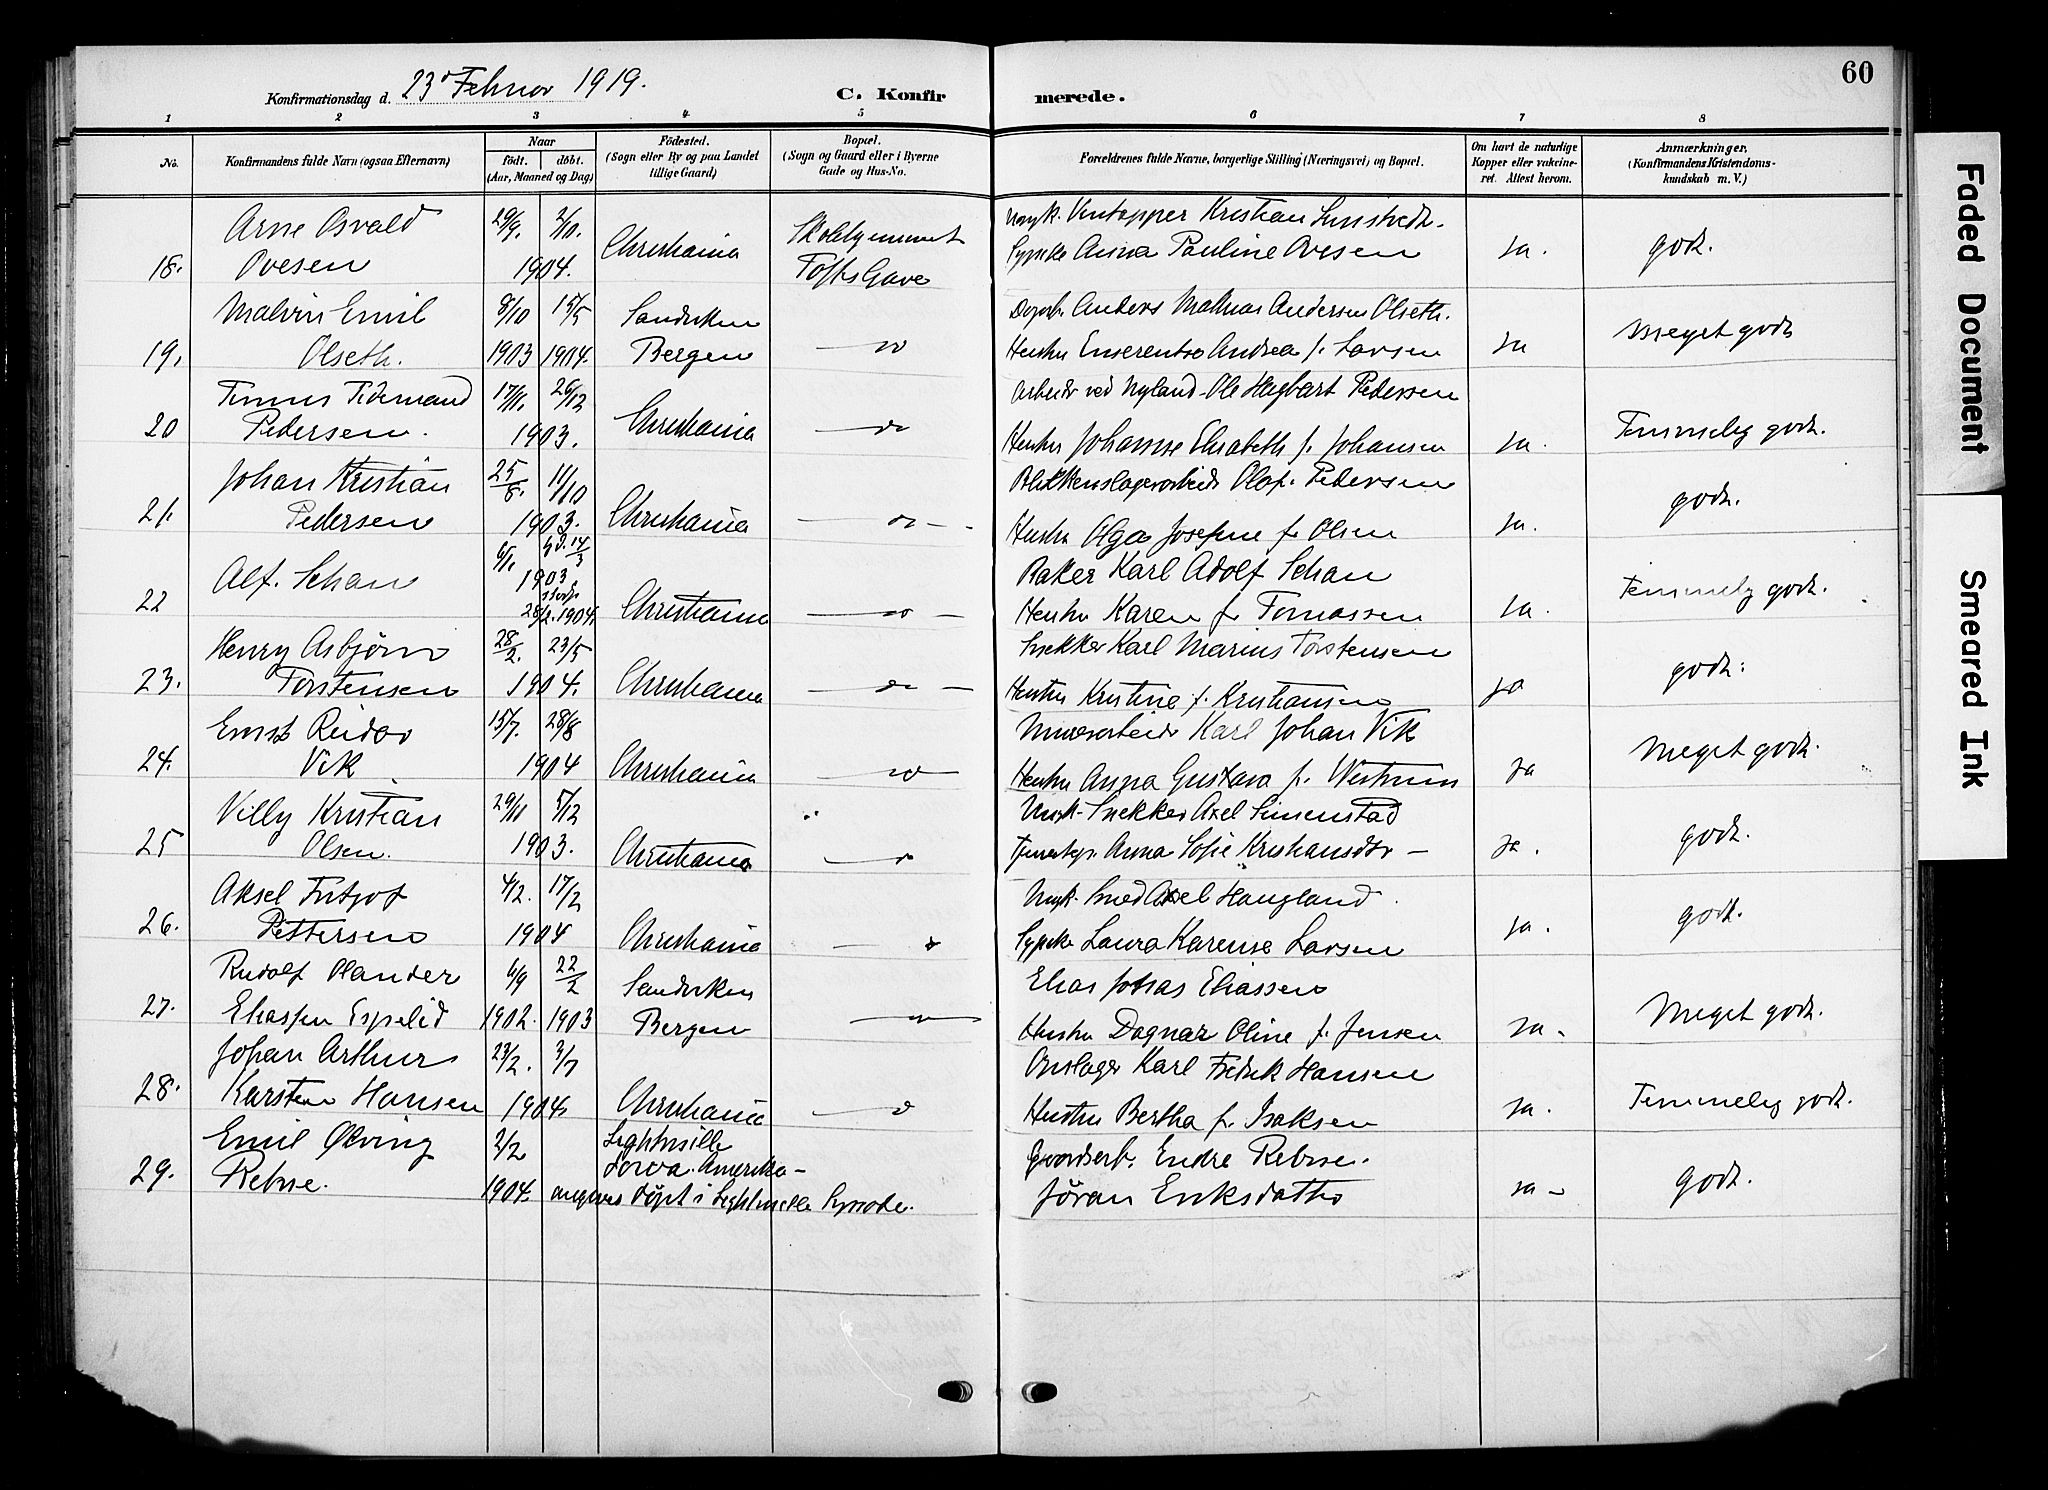 60
Konfirmationsdag d. 23 Februar 1919. C. Konfir merede.
1 2 3 4 5 6 7 8
No. Konfirmandens fulde Navn (ogsaa Efternavn) Naar födt. döbt. (Aar, Maaned og Dag) Födested. (Sogn eller By og paa Landet tillige Gaard) Bopæl. (Sogn og Gaard eller i Byerne Gade og Hus-No. Forældrenes fulde Navne, borgerlige Stilling (Næringsvei) og Bopæl. Om havt de naturlige Kopper eller vakcineret. Attest herom. Anmærkninger. (Konfirmandens Kristendomskundskab m. V.)
Arne Osvald 29/9. 2/10. Skolehjemmet Ungk. Kristian
18. Ovesen 1904. Christiania Tofts Gave Sypike Anna Pauline Ovesen ja. godt.
Malvin Emil 8/10 15/5 Sandviken Anders Mathias Andersen Olseth.
19. Olseth. 1903 1904. Bergen do Hustru Andrea f. Larsen ja Meget godt
Tidemand 17/11. 26/12 Arbeider ved Nyland Ole Hagbart Pedersen
20 Pedersen. 1903. Christiania do Hustru Johanne Elisabeth f. Johansen ja. Temmelig godt.
Johan Kristian 25/8. 11/10 Blikkenslagerarbeider Olaf Pedersen
21. Pedersen 1903. Christiania do Hustru Olga Josefine f. Olsen ja. godt.
Alf. Schau 6/1 14/3 1903 Baker Karl Adolf Schau
22 28/2. 1904. Christiania do Hustru Karen f. Tomassen ja. Temmelig godt.
Henry Asbjörn 28/2. 23/5 Snekker Karl Marius Torstensen
23. Torstensen 1904. Christiania do Hustru Kristine f. Kristiansen ja godt.
Ernst Reidar 15/7. 28/8 Murerarbeider Karl Johan Vik
24. Vik 1904 Christiania do Hustru Anna Gustava f. ja Meget godt.
Villy Kristian 29/11 5/12 Ungk. Snekker Axel Simenstad
25 Olsen. 1903. Christiania do Tjenestepi. Anna Sofie Kristiansdtr ja. godt.
Aksel Fritjof 4/2. 17/2 Ungk. Smed Axel Haugland
26. Pettersen 1904 Christiania Sypike Laura Karense Larsen ja. godt.
Rudolf Olander 6/9 22/2 Sandviken Elias Jonas Eliassen
27. Eliassen Espelid 1902. 1903 Bergen do Hustru Dagmar Oline f. Jensen ja. Meget godt.
Johan Arthur 23/2. 3/7 Karl Fredrik Hansen
28. Karsten Hansen 1904 Christiania do Hustru Bertha f. Isaksen ja. Temmelig godt.
Emil Ølving 2/2 Gaardserb. Endre Rebne.
29. Rebne. 1904. Amerika angives döpt i Synode. Jöran Eriksdatter ja godt.
Faded Document
Smeared Ink